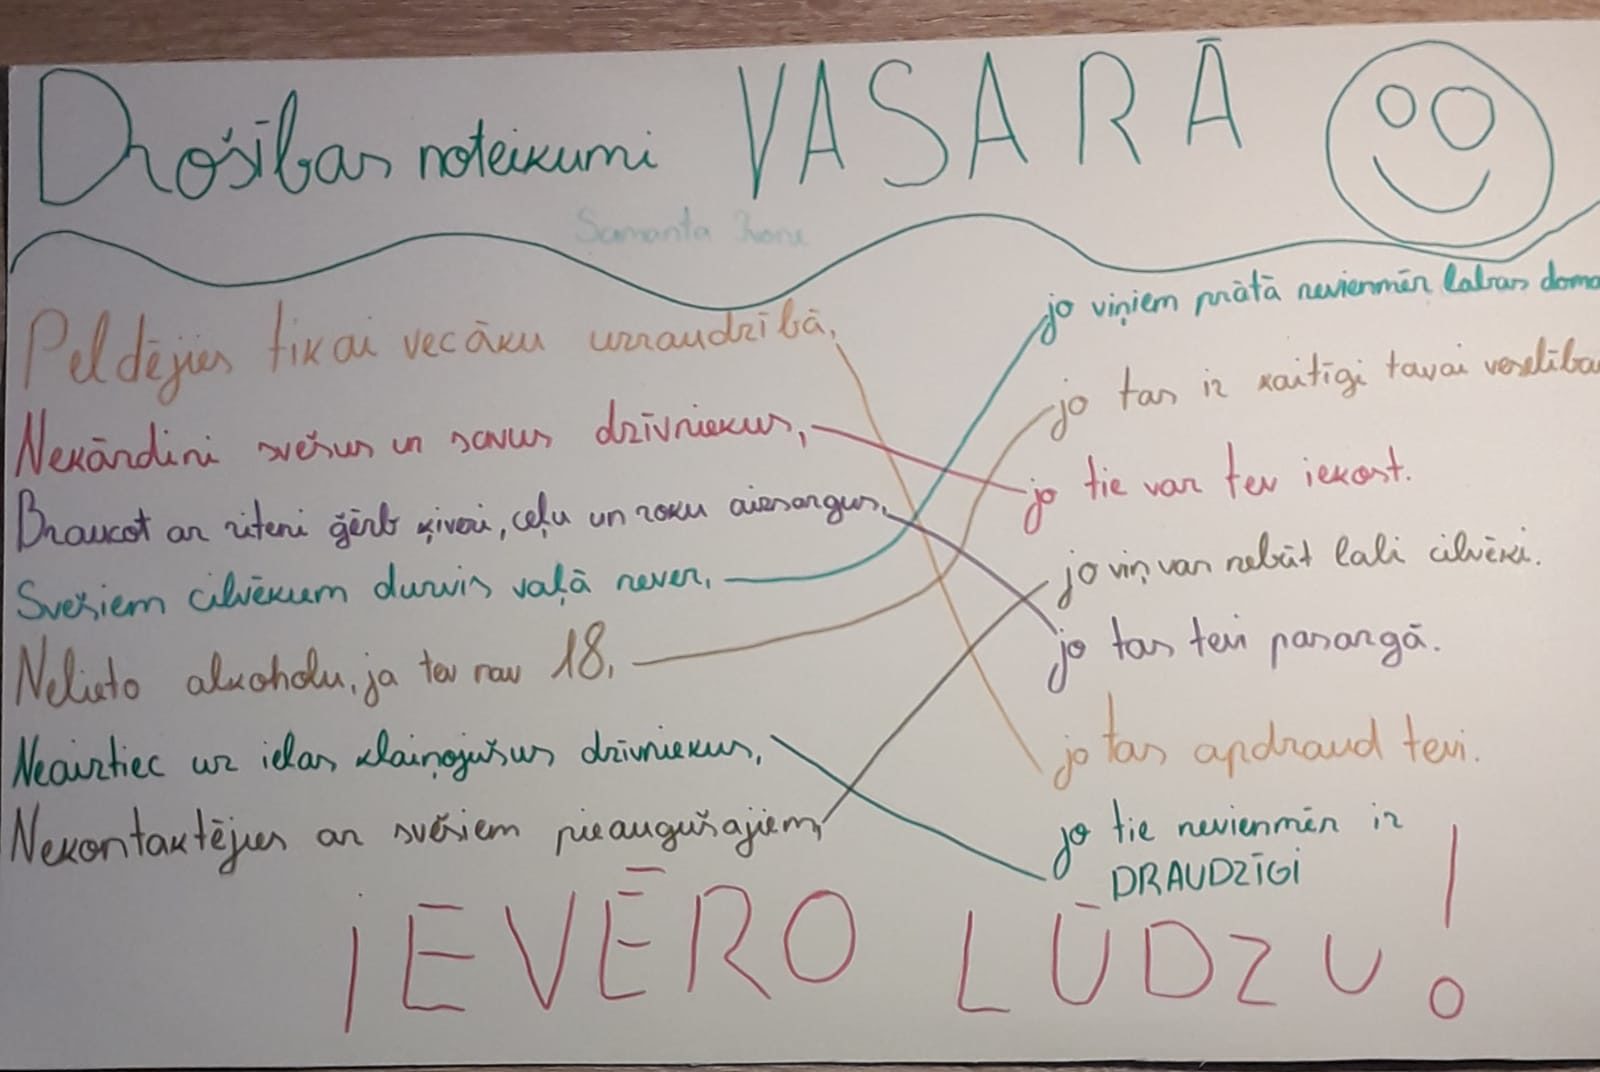 Drošības noteikumi VASARĀ
Samanta
Peldējies tikai vecāku uzraudzībā,
Nekārdini svešus un savus dzīvniekus,
Braucot ar riteni ģērb ķiveri, ceļu un roku aizsargus,
Svešiem cilvēkum durvis vaļā never,
Nelieto alkoholu, ja tev nav 18,
Neaiztiec uz ielas klaiņojušus dzīvniekus,
Nekontaktējies ar svešiem pieaugušajiem,
jo viņiem prātā nevienmēr labas doma
jo tas ir kaitīgi tavai veselība
jo tie var tev iekost.
jo viņ var nebūt labi cilvēki.
jo tas tevi pasargā.
jo tas apdraud tevi.
jo tie nevienmēr ir
DRAUDZĪGI
IEVĒRO LŪDZU!